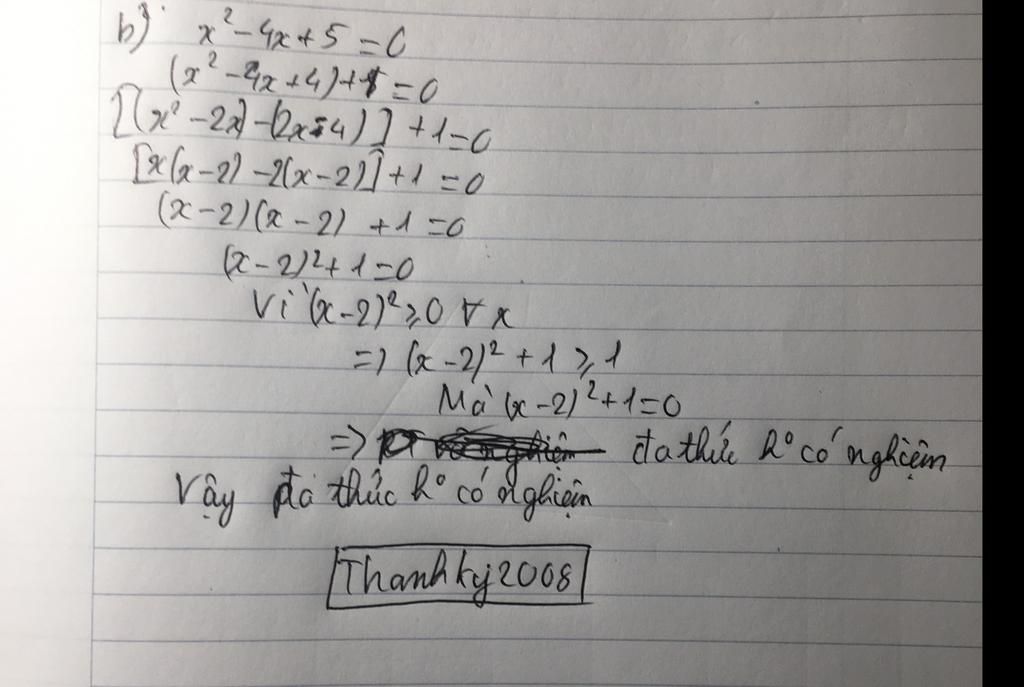 b) x² - 4x + 5 = 0
(x² - 4x + 4) + 1 = 0
[(x² - 2x) - (2x - 4)] + 1 = 0
[x(x - 2) - 2(x - 2)] + 1 = 0
(x - 2)(x - 2) + 1 = 0
(x - 2)² + 1 = 0
Vì (x - 2)² ≥ 0 ∀ x
=> (x - 2)² + 1 ≥ 1
Mà (x - 2)² + 1 = 0
=> đa thức k° có nghiệm
Vậy đa thức k° có nghiệm
Thanhký2008